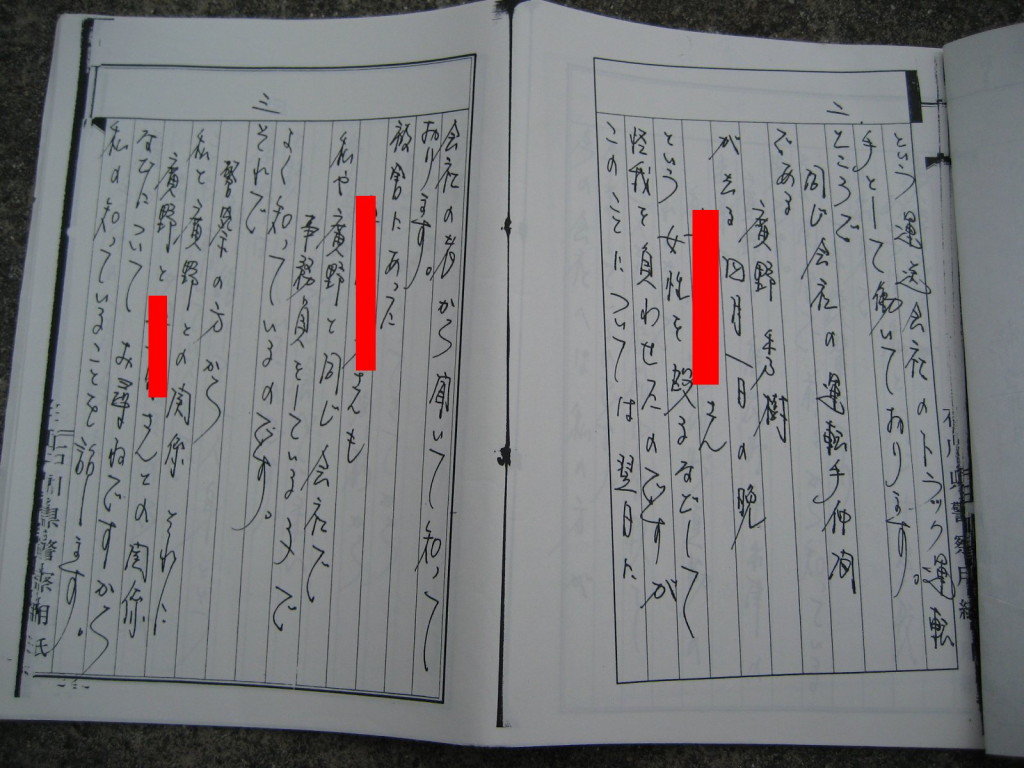 二
という運送会社のトラック運転
手として働いております。
ところで
同じ会社の運転手仲間
である
廣野 秀樹
が去る四月一日の晩
さん
という女性を殴るなどして
怪我を負わせたのですが
このことについては翌日に
石川県警察用紙
三
会社の者から聞いて知って
おります。
被害にあった
さんも
私や廣野と同じ会社で
事務員をしている方で
よく知っているのです。
それで
警察の方から
私と廣野との関係 それに
廣野と さんとの関係
などについてお尋ねですから
私の知っていることを話します。
石川県警察用紙